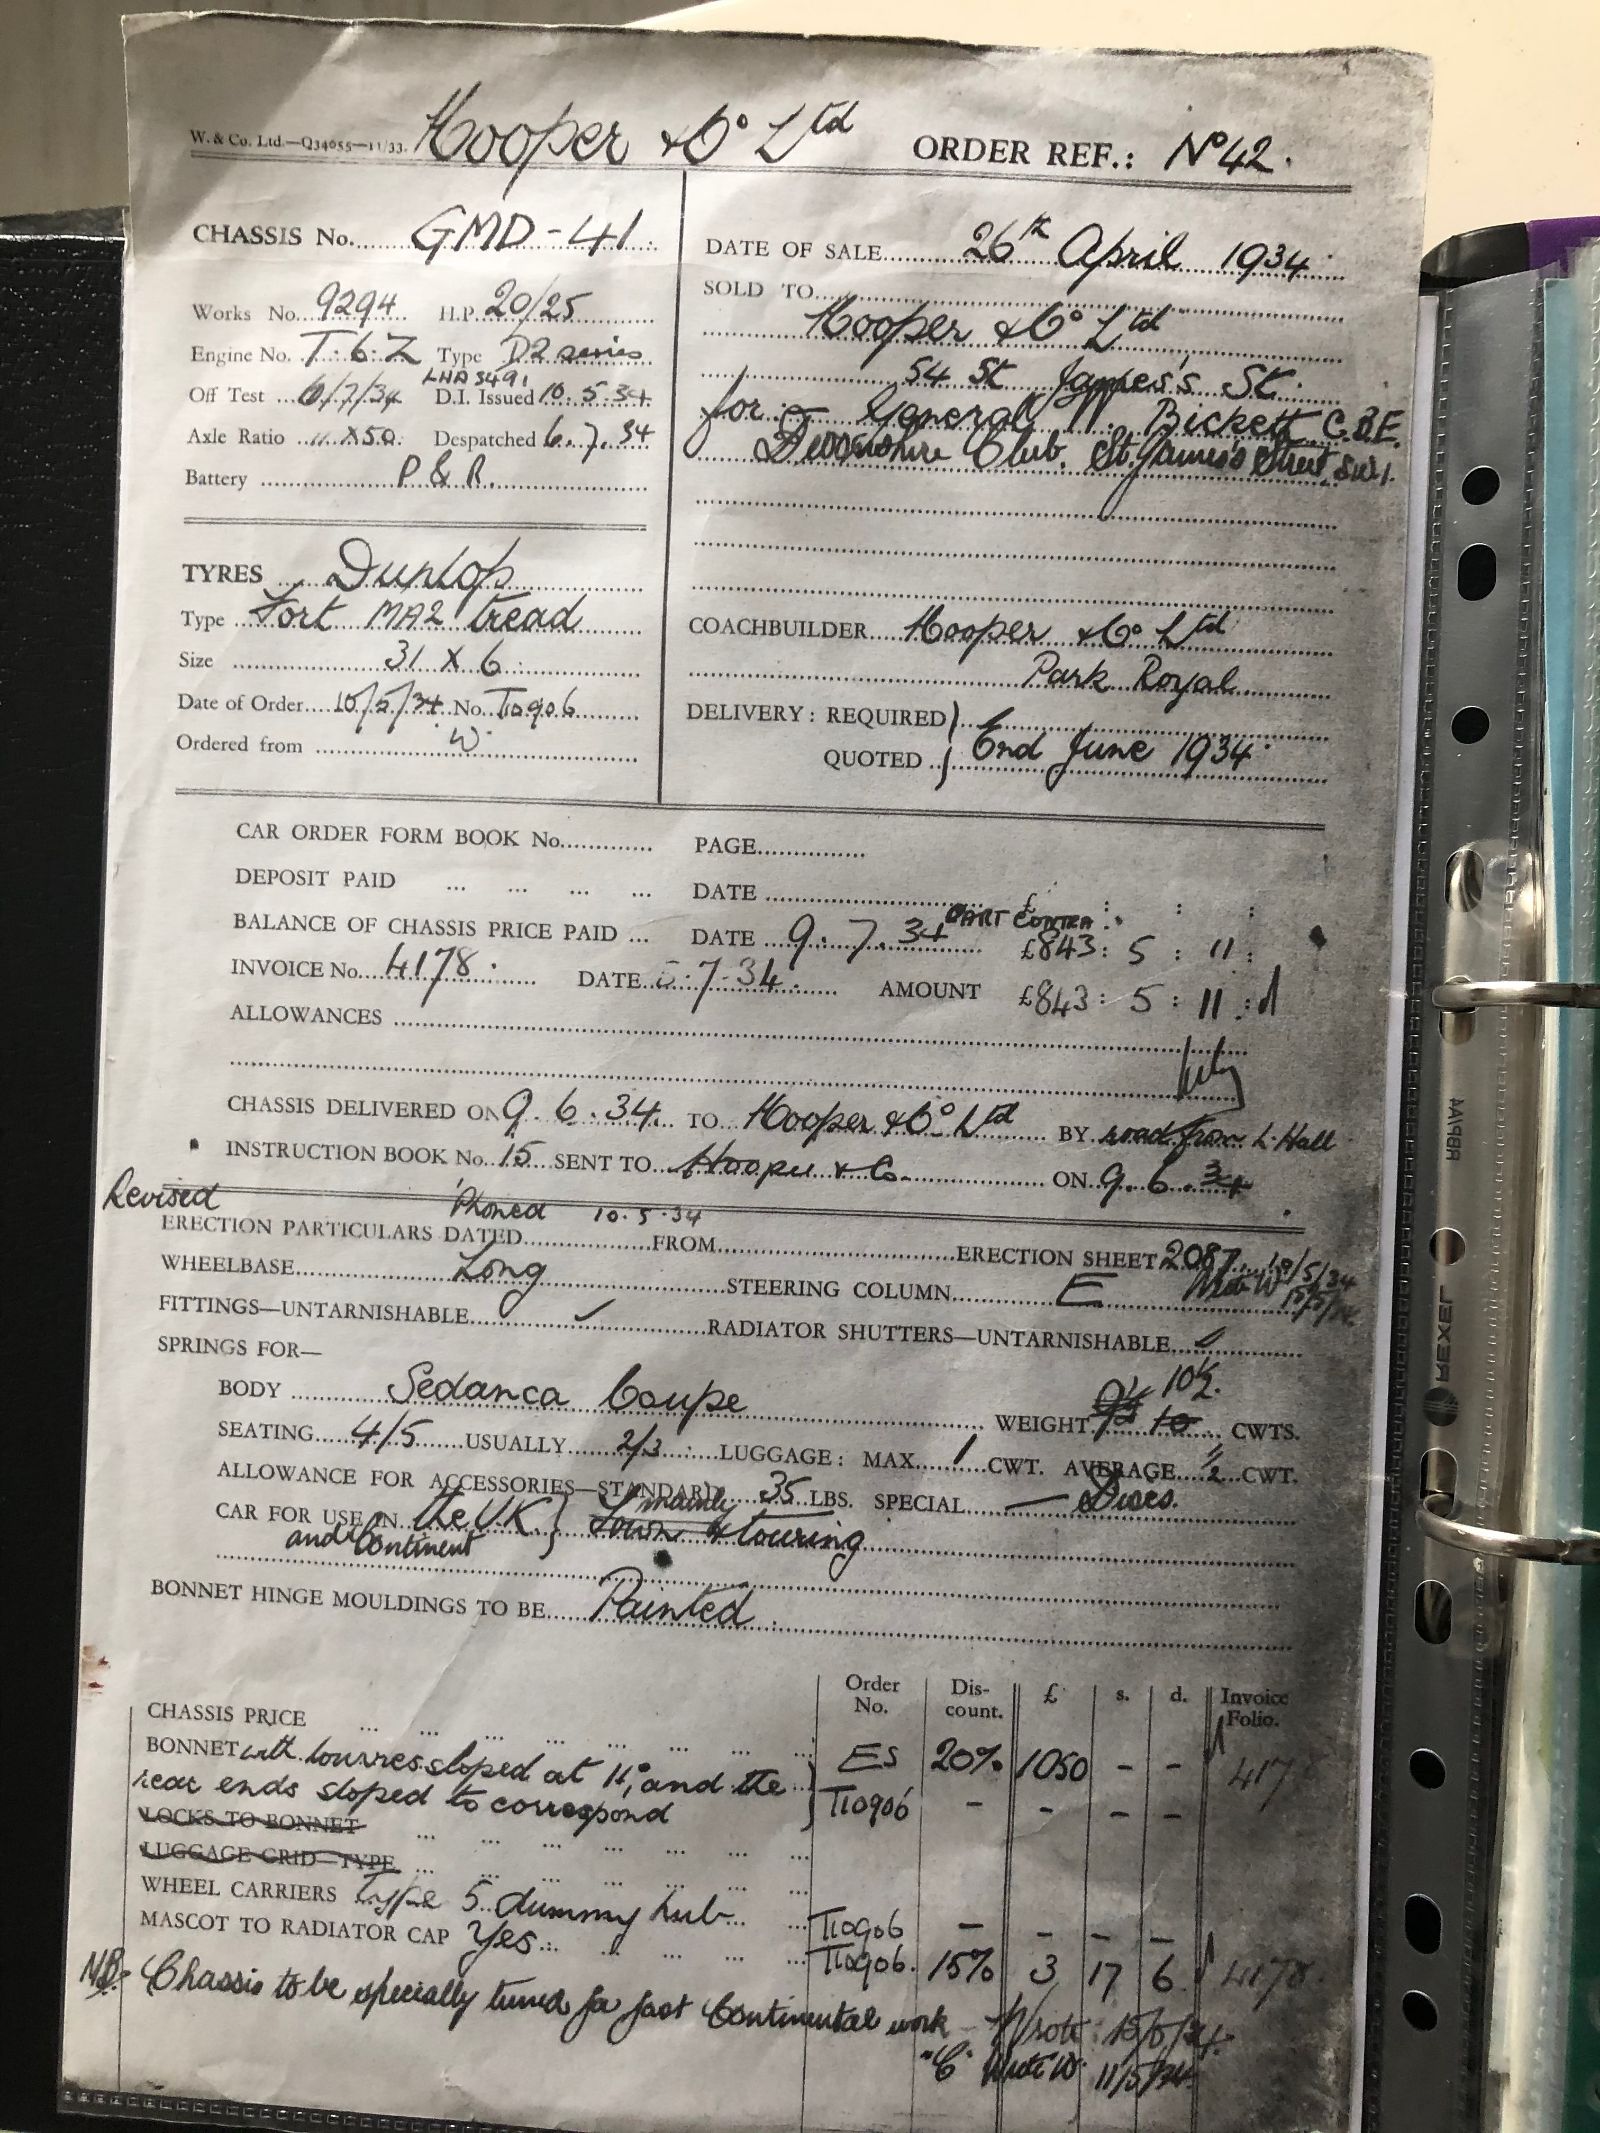 W. & Co. Ltd.—Q34055—11/33. Hooper & Co Ltd ORDER REF.: No 42.
CHASSIS No. GMD-41
Works No. 9294 H.P. 20/25
Engine No. T.6.Z Type D2 series
LHA 3491
Off Test 6/7/34 D.I. Issued 10.5.34
Axle Ratio 11 X 50. Despatched 6.7.34
Battery P & R.
TYRES Dunlop
Type Fort MA2 tread
Size 31 X 6
Date of Order 10/5/34 No. T10906
Ordered from W.
DATE OF SALE 26th April 1934
SOLD TO
Hooper & Co Ltd
54 St James's St.
for General W. Bickett C.B.E.
Devonshire Club, St. James's Street, SW1.
COACHBUILDER Hooper & Co Ltd
Park Royal
DELIVERY: REQUIRED
QUOTED End June 1934
CAR ORDER FORM BOOK No. PAGE
DEPOSIT PAID DATE £ : : :
PART CONTRA
BALANCE OF CHASSIS PRICE PAID DATE 9.7.34 £843 : 5 : 11 :
INVOICE No. 4178. DATE 5.7.34. AMOUNT £843 : 5 : 11 :
ALLOWANCES
CHASSIS DELIVERED ON 9.6.34. TO Hooper & Co Ltd BY road from L. Hall
INSTRUCTION BOOK No. 15 SENT TO Hooper & Co. ON 9.6.34
Revised Phoned 10.5.34
ERECTION PARTICULARS DATED FROM ERECTION SHEET 2087 10/5/34
WHEELBASE Long STEERING COLUMN E
FITTINGS—UNTARNISHABLE ✓ RADIATOR SHUTTERS—UNTARNISHABLE ✓
SPRINGS FOR—
BODY Sedanca Coupe WEIGHT 10 10½. CWTS.
SEATING 4/5 USUALLY 2/3 LUGGAGE: MAX. 1 CWT. AVERAGE ½ CWT.
ALLOWANCE FOR ACCESSORIES—STANDARD 35 LBS. SPECIAL — Discs.
CAR FOR USE IN the UK mainly Town & touring
and Continent
BONNET HINGE MOULDINGS TO BE Painted.
Order No. Discount. £ s. d. Invoice Folio.
CHASSIS PRICE ES 20% 1050 - - 4178
BONNET with louvres sloped at 11°, and the T10906 - - - -
rear ends sloped to correspond
LOCKS TO BONNET
LUGGAGE GRID—TYPE
WHEEL CARRIERS Type 5 dummy hub T10906 - - - -
MASCOT TO RADIATOR CAP Yes T10906. 15% 3 17 6 4178.
NB. Chassis to be specially tuned for fast Continental work - Wrote
"C" Wrote W. 11/5/34
REXEL
RBPAA